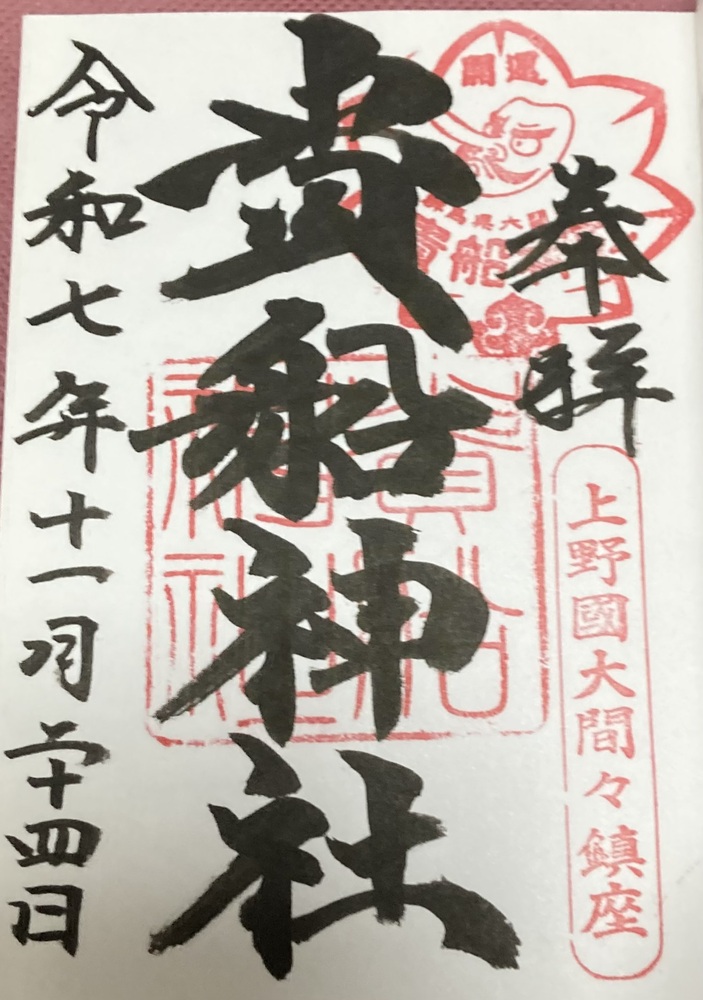 奉拝
開運
群馬県大間
貴船神社
上野國大間々鎮座
貴船神社
貴船神社
令和七年十一月二十四日